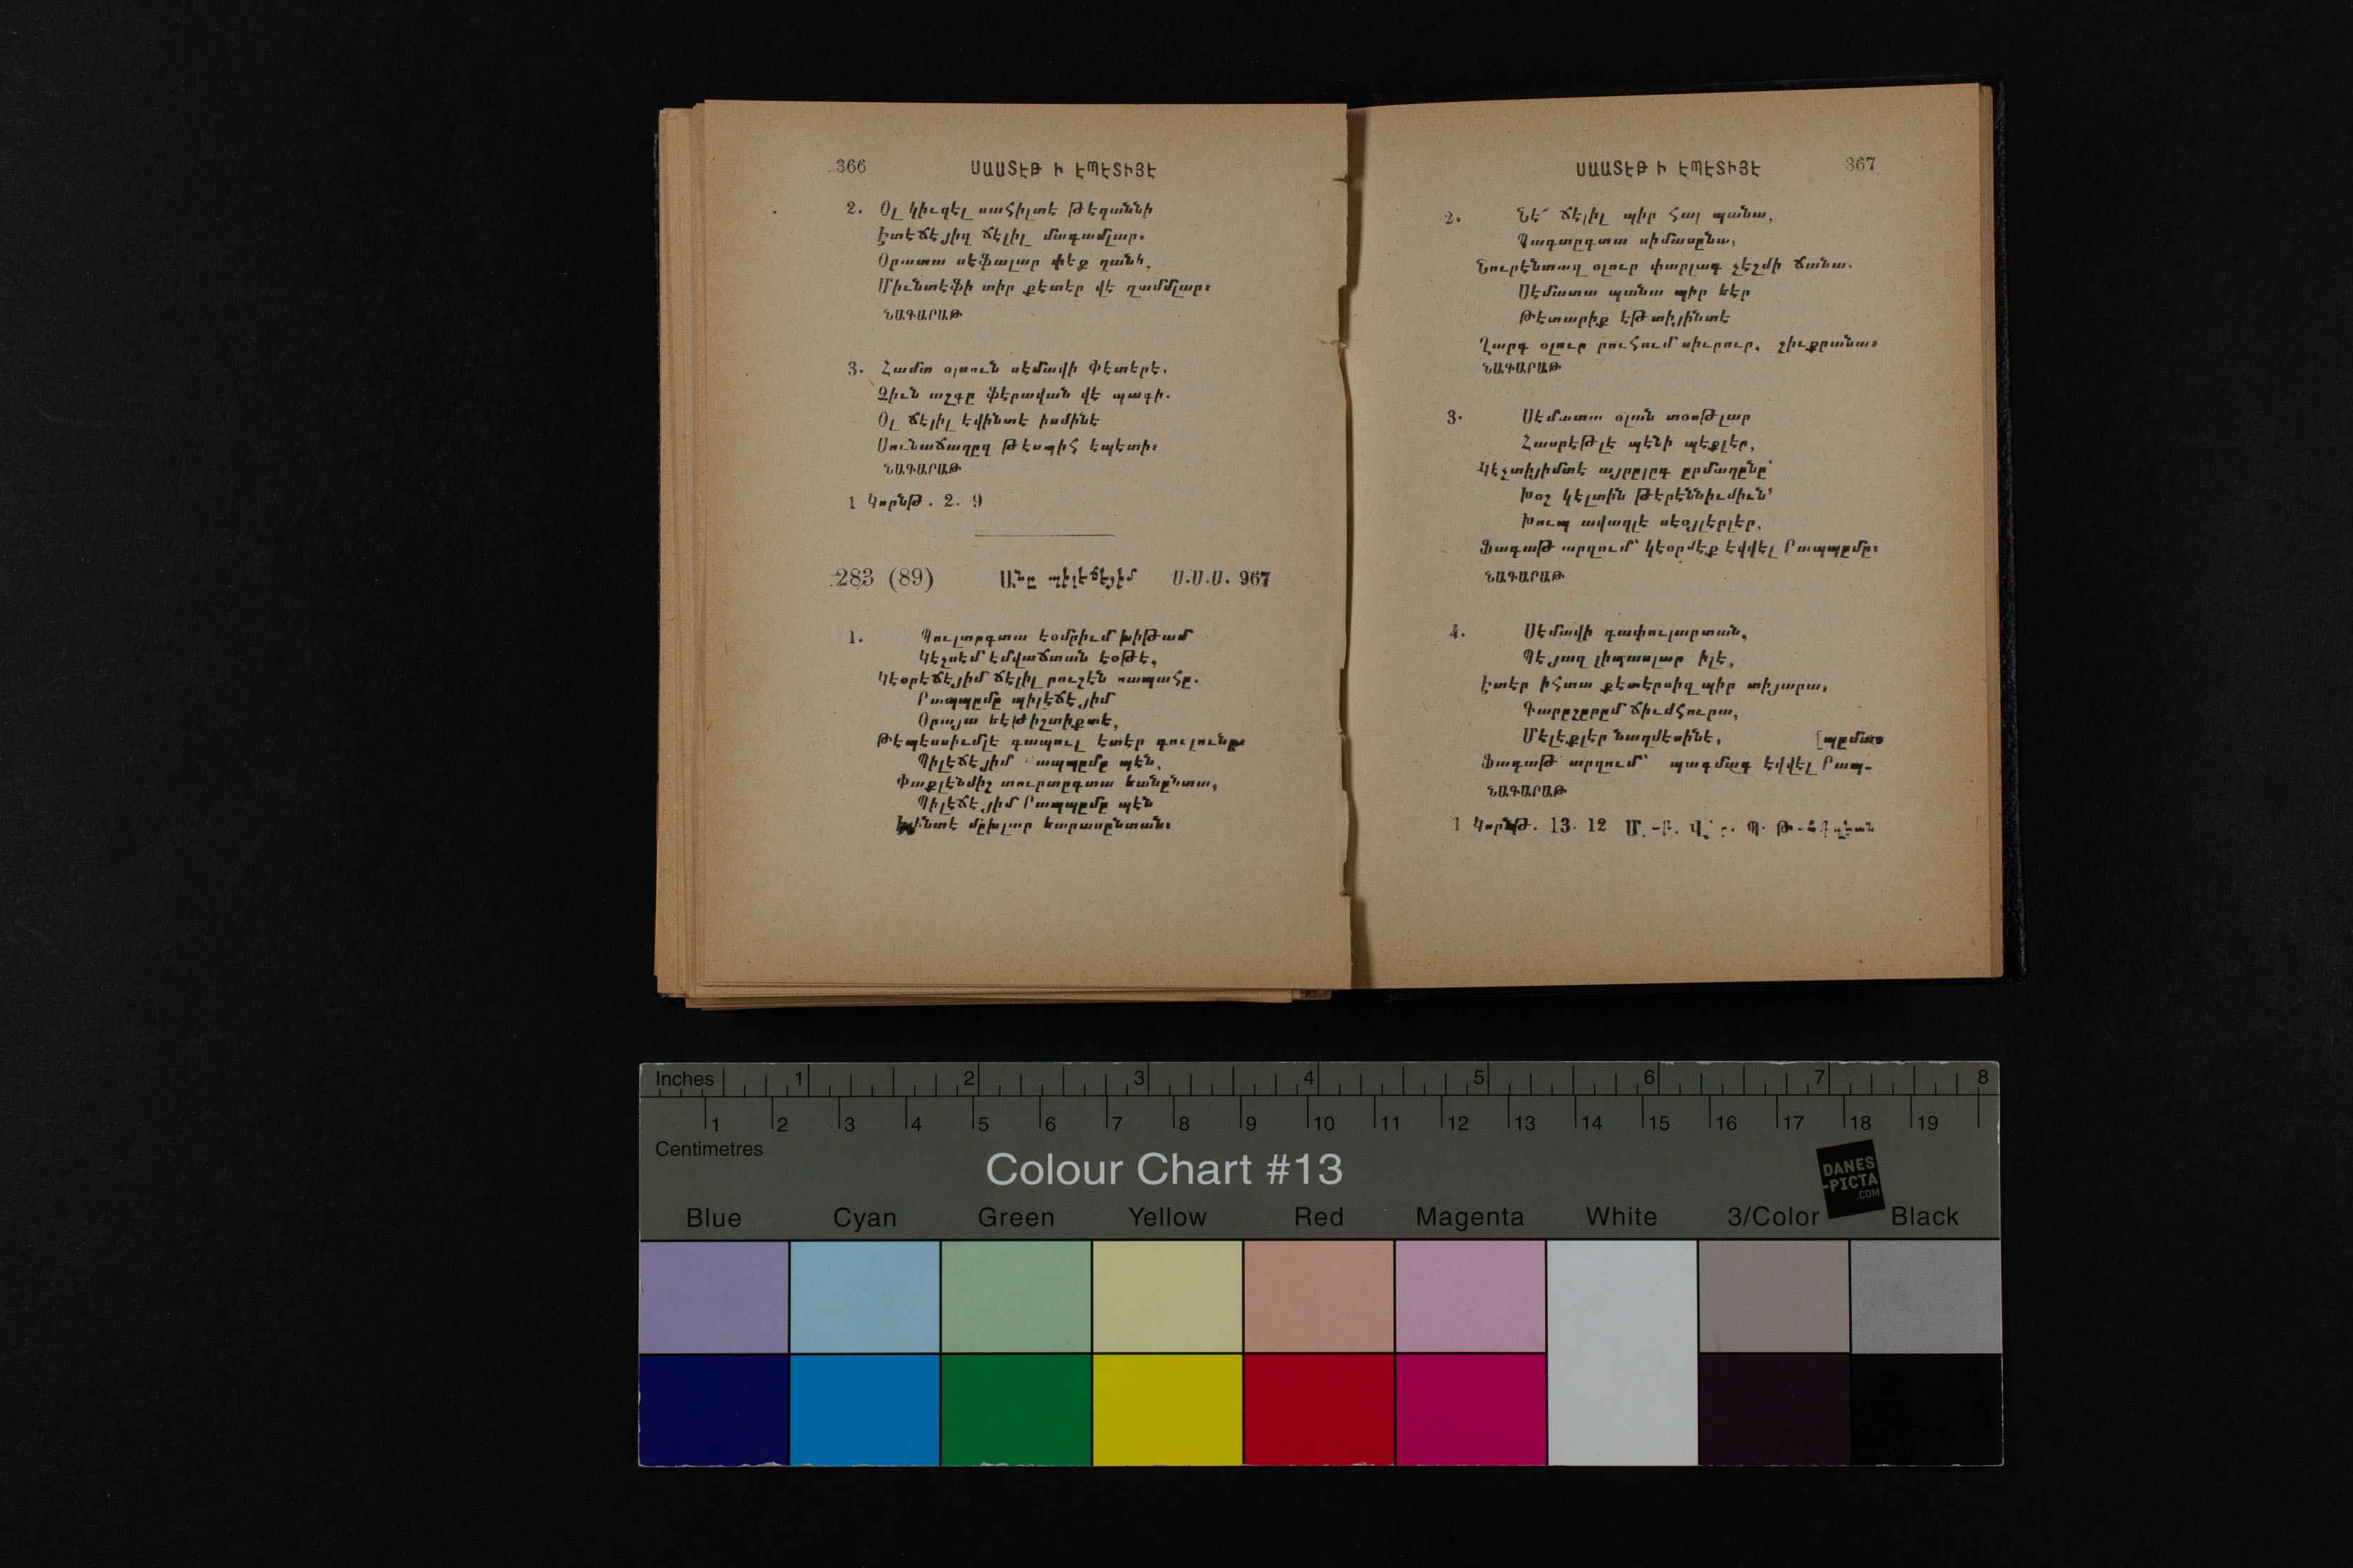 366 ՍԱԱՏԷԹ Ի ԷՊԷՏԻՅԷ
2. Օլ կիւզէլ սահիլտէ թէղաննի
Էտէճէյիզ ճէլիլ մագամլար.
Օրատա սէֆալար փէք ղանի,
Միւնտէֆի տիր քէտէր վէ ղամմլար։
ՆԱԳԱՐԱԹ
3. Համտ օլսուն սէմավի Փէտէրէ.
Զիւն աշգը ֆէրավան վէ պագի.
Օլ ճէլիլ էվինտէ իսմինէ
Սունաճաղըզ թէսպիհ էպէտի։
ՆԱԳԱՐԱԹ
1 Կորնթ. 2. 9
283 (89) Անը պիլէճէյիմ Ս.Ս.Ս. 967
1. Պուլտըգտա էօմրիւմ խիթամ
Կէչսէմ էմվաճտան էօթէ,
Կէօրէճէյիմ ճէլիլ րուշէն սապահը.
Րապպըմը պիլէճէյիմ
Օրայա եէթիշտիքտէ,
Թէպէսսիւմլէ գապուլ էտէր գուլունը։
Պիլէճէյիմ ապպըմը պէն,
Փաքլէնմիշ տուրտըգտա եանընտա,
Պիլէճէյիմ Րապպըմը պէն
մըխլար եարասընտան։
ՍԱԱՏԷԹ Ի ԷՊԷՏԻՅԷ 367
2. Նէ՜ ճէլիլ պիր հալ պանա,
Պագտըգտա սիմասընա,
Նուրէնտազ օլուր փարլագ չէշմի ճանա.
Սէմատա պանա պիր եէր
Թէտարիք էթտիյինտէ
Ղարգ օլուր րուհում սիւրուր, շիւքրանա։
ՆԱԳԱՐԱԹ
3. Սէմատա օլան տօսթլար
Հասրէթլէ պէնի պէքլէր,
Կէչտիյիմտէ այրըլըգ ըրմաղընը՝
Խօշ կէլտին թէրէննիւմիւն՝
Խուպ ավազլէ սէօյլէրլէր.
Ֆագաթ արզում՝ կէօրմէք էվվէլ Րապպըմը։
ՆԱԳԱՐԱԹ
4. Սէմավի գափուլարտան,
Պէյազ լիպասլար իլէ,
Էտէր իհտա քէտէրսիզ պիր տիյարա,
Գարըշըրըմ ճիւմհուրա,
Մէլէքլէր նաղմէսինէ, [պըմա։
Ֆագաթ արզում՝ պագմագ էվվէլ Րապ-
ՆԱԳԱՐԱԹ
1 Կորնթ. 13. 12
Inches 1 2 3 4 5 6 7 8
1 2 3 4 5 6 7 8 9 10 11 12 13 14 15 16 17 18 19
Centimetres
Colour Chart #13
DANES
-PICTA
.COM
Blue Cyan Green Yellow Red Magenta White 3/Color Black